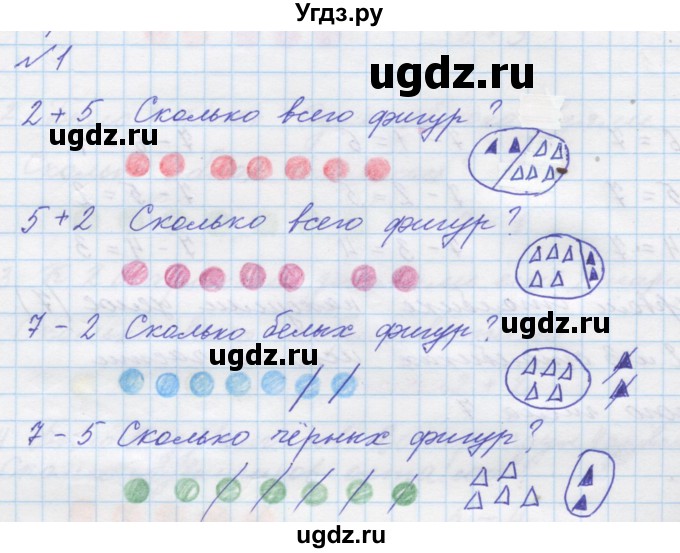 Угдз.ру
№1
ugdz.ru
2 + 5 Сколько всего фигур?
ugdz.ru
5 + 2 Сколько всего фигур?
ugdz.ru
7 - 2 Сколько белых фигур?
ugdz.ru
7 - 5 Сколько чёрных фигур?
ugdz.ru